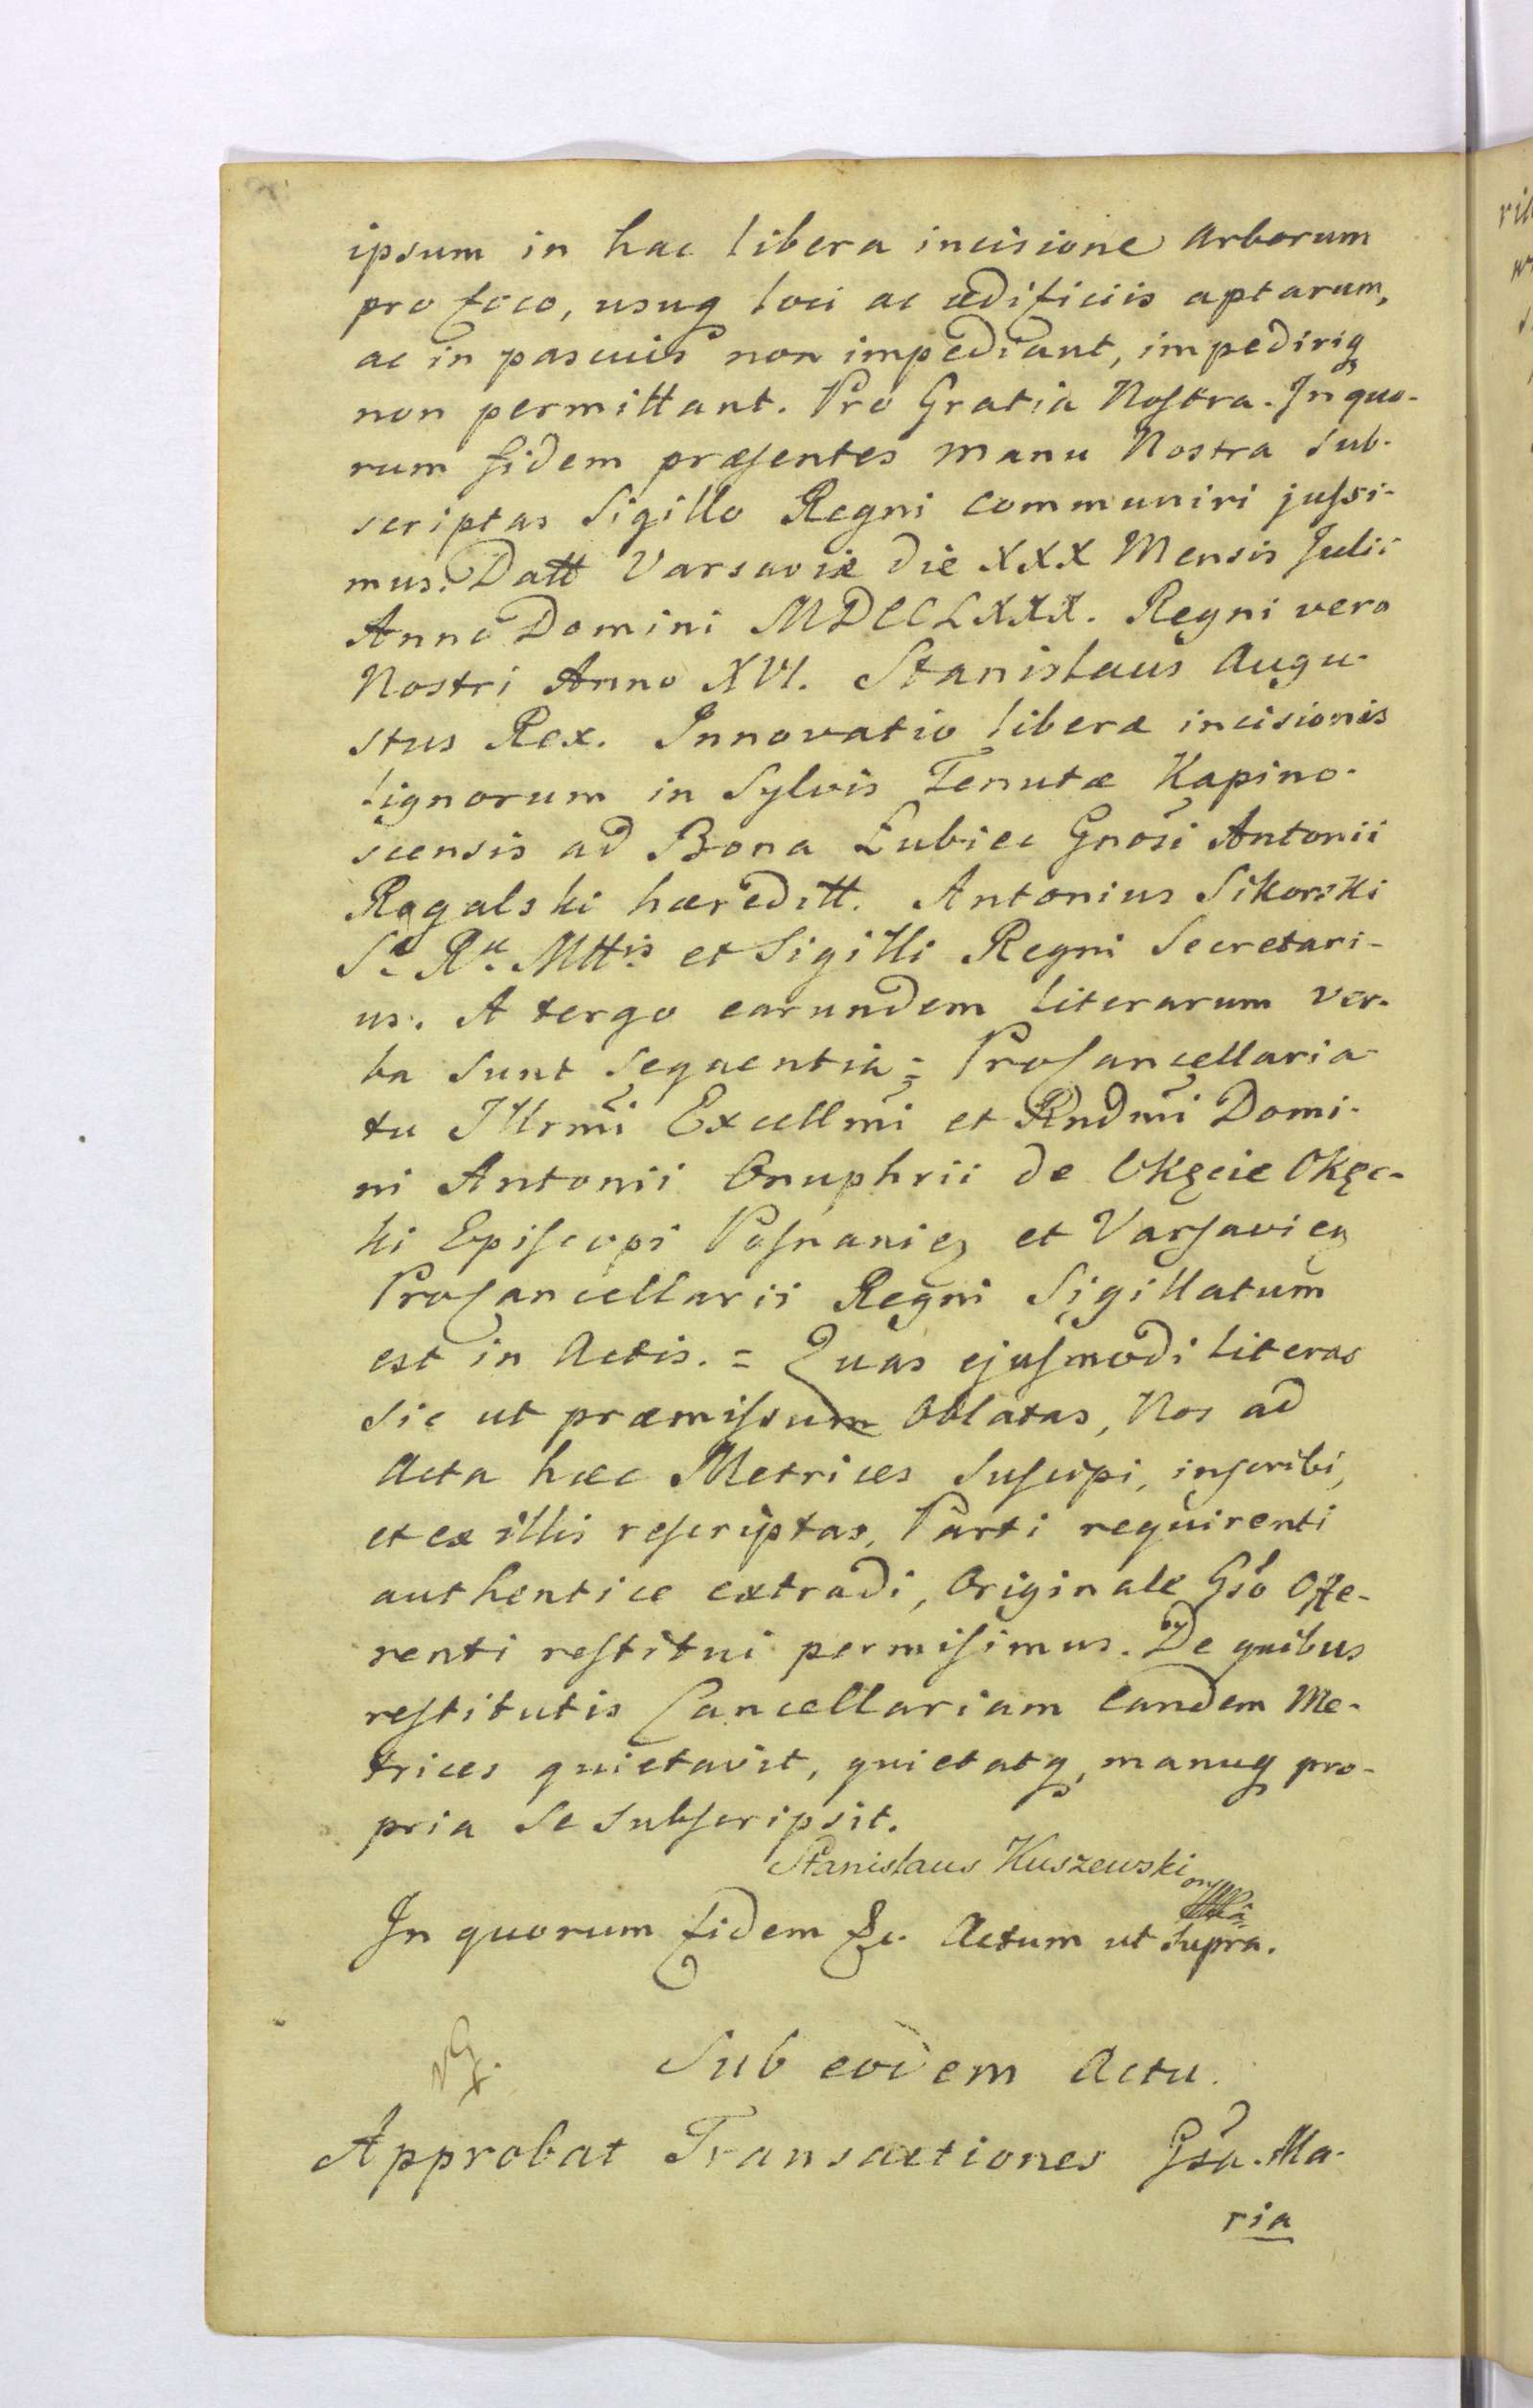 ipsum in hac libera incisione arborum
pro foco, usuq loci ac ædificiis aptarum,
ac in pascuis non impediant, impediriq
non permittant. Pro Gratia Nostra. In quo-
rum fidem præsentes manu Nostra sub-
scriptas Sigillo Regni communiri jussi-
mus. Datt Varsaviæ die XXX Mensis Julii
Anno Domini MDCCLXXX. Regni vero
Nostri Anno XVI. Stanislaus Augu-
stus Rex. Innovatio liberæ incisionis
lignorum in Sylvis Tenutæ Kapino-
scensis ad Bona Łubiec Gnosi Antonii
Rogalski hæreditt. Antonius Sikorski
Sæ Ræ Mttis et Sigilli Regni Secretari-
us. A tergo earundem literarum ver-
ba sunt sequentia = ProCancellaria-
tu Illrmi Excellmi et Rndmi Domi-
ni Antonii Onuphrii de Okęcie Okęc-
ki Episcopi Posnanien et Varsavien
ProCancellarii Regni Sigillatum
est in Actis. = Quas ejusmodi literas
sic ut præmissum oblatas, Nos ad
Acta hæc Metrices suscipi, inscribi,
et ex illis rescriptas, Parti requirenti
authentice extradi, Originale Gso Offe-
renti restitui permisimus. De quibus
restitutis Cancellariam eandem Me-
trices quietavit, quietatq, manuq pro-
pria se subscripsit.
Stanislaus Kuszewski
In quorum fidem &c. Actum ut supra.
Sub eodem Actu.
Approbat Transactiones Gsa. Ma-
ria